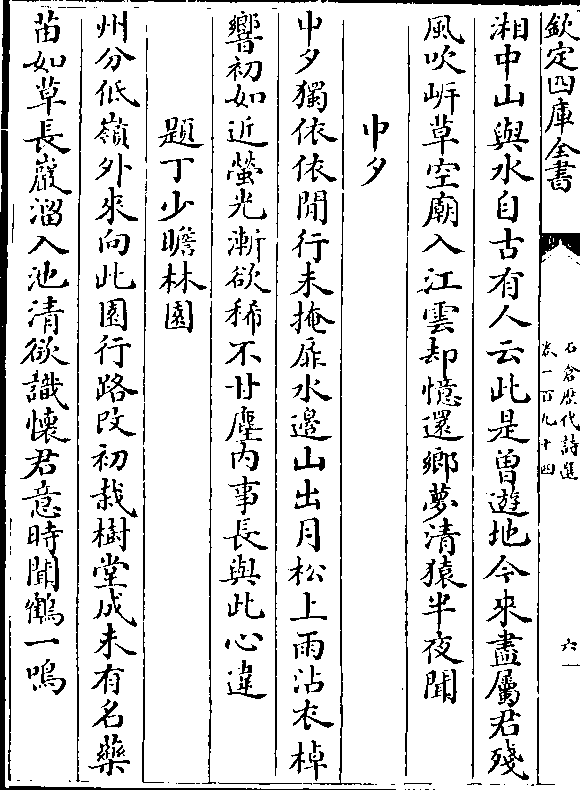 欽定四庫全書
石倉歷代詩選
卷一百九十四
六一
湘中山與水自古有人云此是曽遊地今來盡屬君殘
風吹岍草空廟入江雲却憶還鄉夢清猿半夜聞
中夕
中夕獨依依閒行未掩扉水邊山出月松上雨沾衣棹
響初如近螢光漸欲稀不甘塵内事長與此心違
題丁少瞻林園
州分低嶺外來向此園行路改初栽樹堂成未有名藥
苗如草長巖溜入池清欲識懷君意時聞鶴一鳴